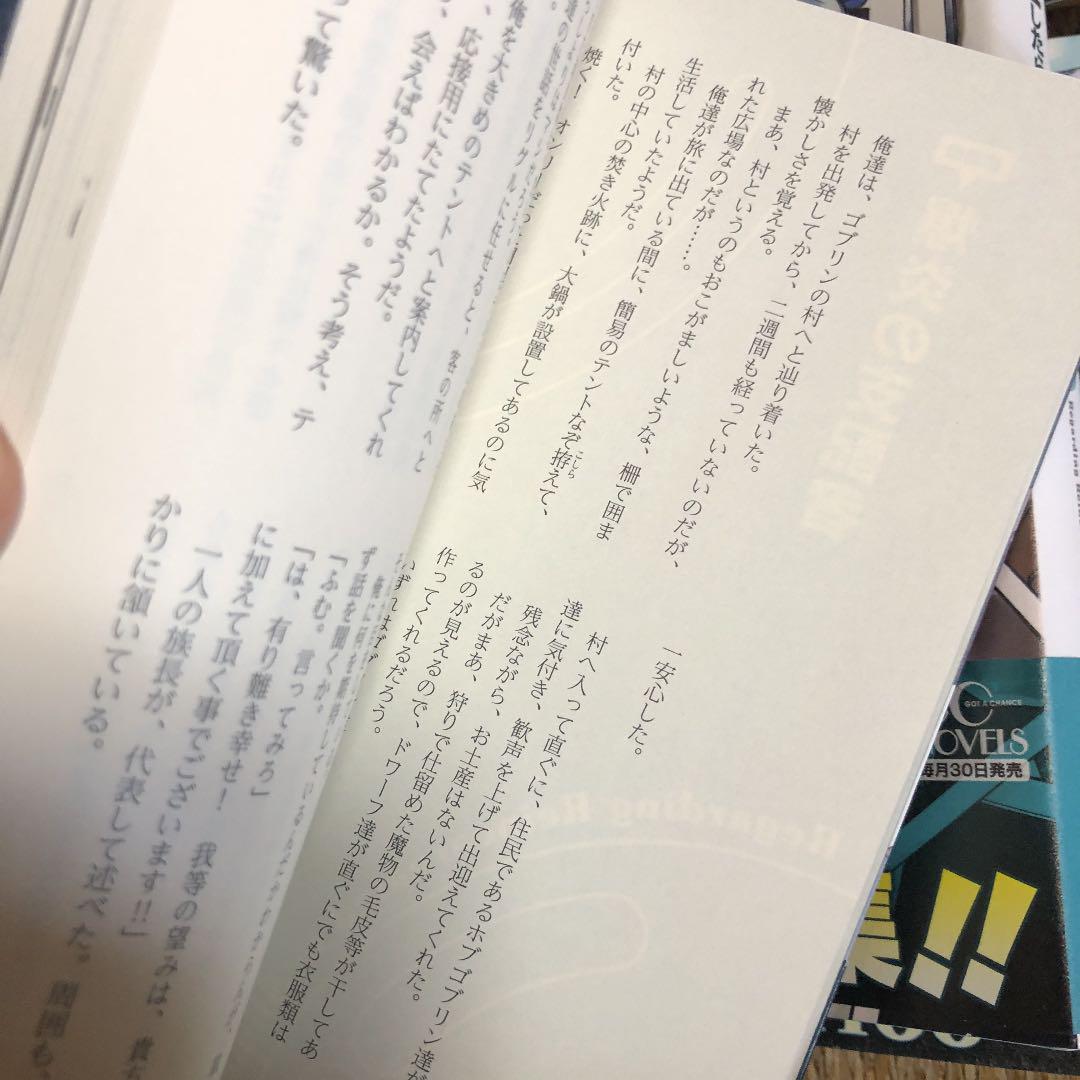 俺達は、ゴブリンの村へと辿り着いた。
村を出発してから、二週間も経っていないのだが、
懐かしさを覚える。
まあ、村というのもおこがましいような、柵で囲ま
れた広場なのだが……。
俺達が旅に出ている間に、簡易のテントなぞ拵えて、
こしら
生活していたようだ。
村の中心の焚き火跡に、大鍋が設置してあるのに気
付いた。
焼く！
一安心した。
村へ入って直ぐに、住民であるホブゴブリン達が
達に気付き、歓声を上げて出迎えてくれた。
残念ながら、お土産はないんだ。
だがまあ、狩りで仕留めた魔物の毛皮等が干してあ
るのが見えるので、ドワーフ達が直ぐにでも衣服類は
作ってくれるだろう。
いずれは
に任せると、客の所へと
俺を大きめのテントへと案内してくれ
応接用にたてたようだ。
会えばわかるか。そう考え、テ
って驚いた。
ず話を聞くか。
「ふむ。言ってみろ」
「は、有り難き幸せ！　我等の望みは、貴
に加えて頂く事でございます!!」
一人の族長が、代表して述べた。周囲も、
かりに頷いている。
GOT A CHANCE
C
NOVELS
毎月30日発売
!!